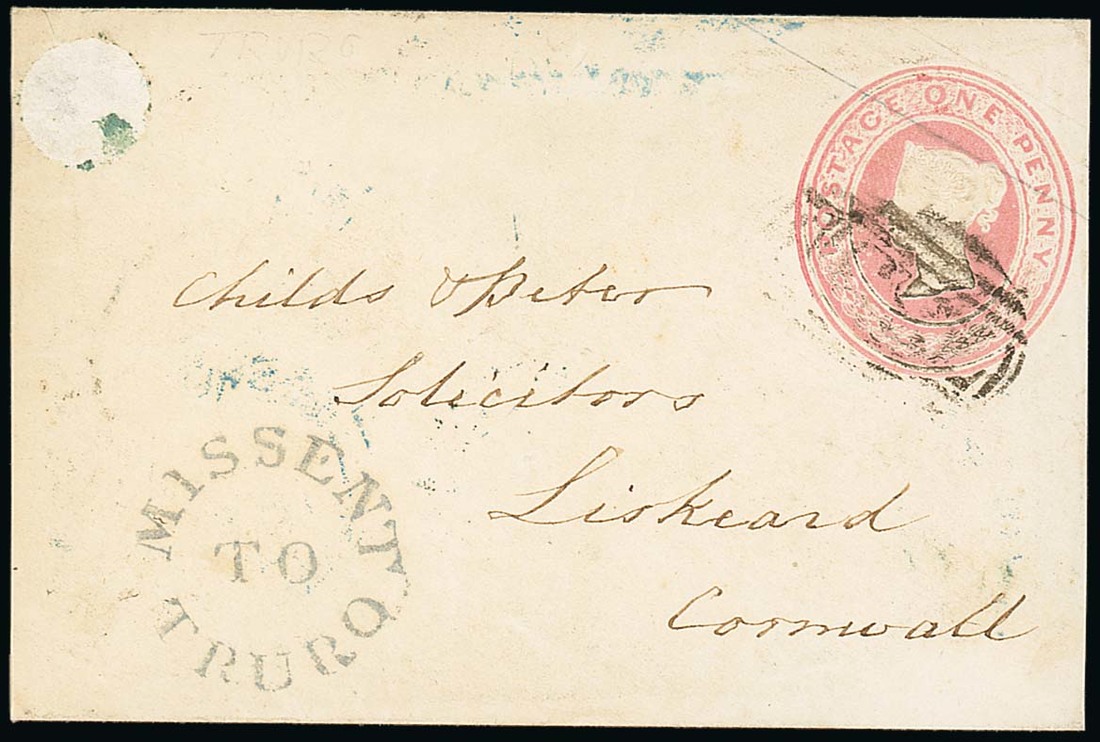 TRURO
POSTAGE ONE PENNY
Childs & Peter
Solicitors
Liskeard
Cornwall
MISSENT
TO
TRURO